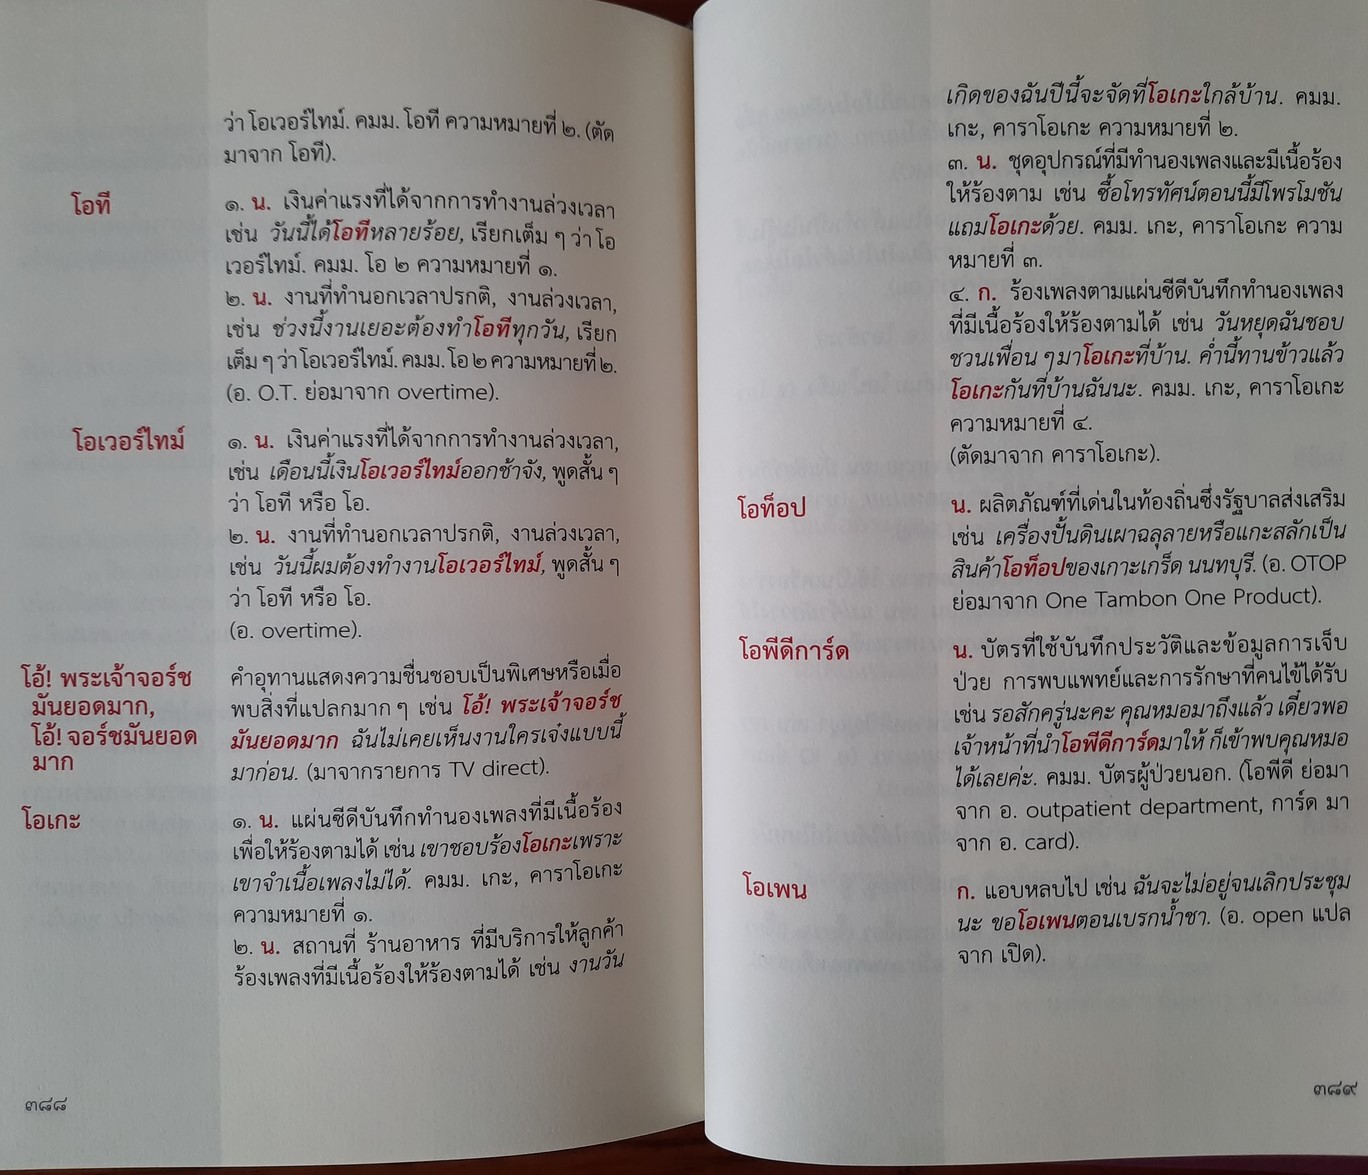 ว่า โอเวอร์ไทม์. คมม. โอที ความหมายที่ ๒. (ตัด
มาจาก โอที).
โอที
๑. น. เงินค่าแรงที่ได้จากการทำงานล่วงเวลา
เช่น วันนี้ได้โอทีหลายร้อย, เรียกเต็ม ๆ ว่า โอ
เวอร์ไทม์. คมม. โอ ๒ ความหมายที่ ๑.
๒. น. งานที่ทำนอกเวลาปรกติ, งานล่วงเวลา,
เช่น ช่วงนี้งานเยอะต้องทำโอทีทุกวัน, เรียก
เต็ม ๆ ว่า โอเวอร์ไทม์. คมม. โอ ๒ ความหมายที่ ๒.
(อ. O.T. ย่อมาจาก overtime).
โอเวอร์ไทม์
๑. น. เงินค่าแรงที่ได้จากการทำงานล่วงเวลา,
เช่น เดือนนี้เงินโอเวอร์ไทม์ออกช้าจัง, พูดสั้น ๆ
ว่า โอที หรือ โอ.
๒. น. งานที่ทำนอกเวลาปรกติ, งานล่วงเวลา,
เช่น วันนี้ผมต้องทำงานโอเวอร์ไทม์, พูดสั้น ๆ
ว่า โอที หรือ โอ.
(อ. overtime).
โอ้! พระเจ้าจอร์ช
มันยอดมาก,
โอ้! จอร์ชมันยอด
มาก
คำอุทานแสดงความชื่นชอบเป็นพิเศษหรือเมื่อ
พบสิ่งที่แปลกมาก ๆ เช่น โอ้! พระเจ้าจอร์ช
มันยอดมาก ฉันไม่เคยเห็นงานใครเจ๋งแบบนี้
มาก่อน. (มาจากรายการ TV direct).
โอเกะ
๑. น. แผ่นซีดีบันทึกทำนองเพลงที่มีเนื้อร้อง
เพื่อให้ร้องตามได้ เช่น เขาชอบร้องโอเกะเพราะ
เขาจำเนื้อเพลงไม่ได้. คมม. เกะ, คาราโอเกะ
ความหมายที่ ๑.
๒. น. สถานที่ ร้านอาหาร ที่มีบริการให้ลูกค้า
ร้องเพลงที่มีเนื้อร้องให้ร้องตามได้ เช่น งานวัน
๓๘๘
เกิดของฉันปีนี้จะจัดที่โอเกะใกล้บ้าน. คมม.
เกะ, คาราโอเกะ ความหมายที่ ๒.
๓. น. ชุดอุปกรณ์ที่มีทำนองเพลงและมีเนื้อร้อง
ให้ร้องตาม เช่น ซื้อโทรทัศน์ตอนนี้มีโพรโมชัน
แถมโอเกะด้วย. คมม. เกะ, คาราโอเกะ ความ
หมายที่ ๓.
๔. ก. ร้องเพลงตามแผ่นซีดีบันทึกทำนองเพลง
ที่มีเนื้อร้องให้ร้องตามได้ เช่น วันหยุดฉันชอบ
ชวนเพื่อน ๆ มาโอเกะที่บ้าน. ค่ำนี้ทานข้าวแล้ว
โอเกะกันที่บ้านฉันนะ. คมม. เกะ, คาราโอเกะ
ความหมายที่ ๔.
(ตัดมาจาก คาราโอเกะ).
โอท็อป
น. ผลิตภัณฑ์ที่เด่นในท้องถิ่นซึ่งรัฐบาลส่งเสริม
เช่น เครื่องปั้นดินเผาฉลุลายหรือแกะสลักเป็น
สินค้าโอท็อปของเกาะเกร็ด นนทบุรี. (อ. OTOP
ย่อมาจาก One Tambon One Product).
โอพีดีการ์ด
น. บัตรที่ใช้บันทึกประวัติและข้อมูลการเจ็บ
ป่วย การพบแพทย์และการรักษาที่คนไข้ได้รับ
เช่น รอสักครู่นะคะ คุณหมอมาถึงแล้ว เดี๋ยวพอ
เจ้าหน้าที่นำโอพีดีการ์ดมาให้ ก็เข้าพบคุณหมอ
ได้เลยค่ะ. คมม. บัตรผู้ป่วยนอก. (โอพีดี ย่อมา
จาก อ. outpatient department, การ์ด มา
จาก อ. card).
โอเพน
ก. แอบหลบไป เช่น ฉันจะไม่อยู่จนเลิกประชุม
นะ ขอโอเพนตอนเบรกน้ำชา. (อ. open แปล
จาก เปิด).
๓๘๙